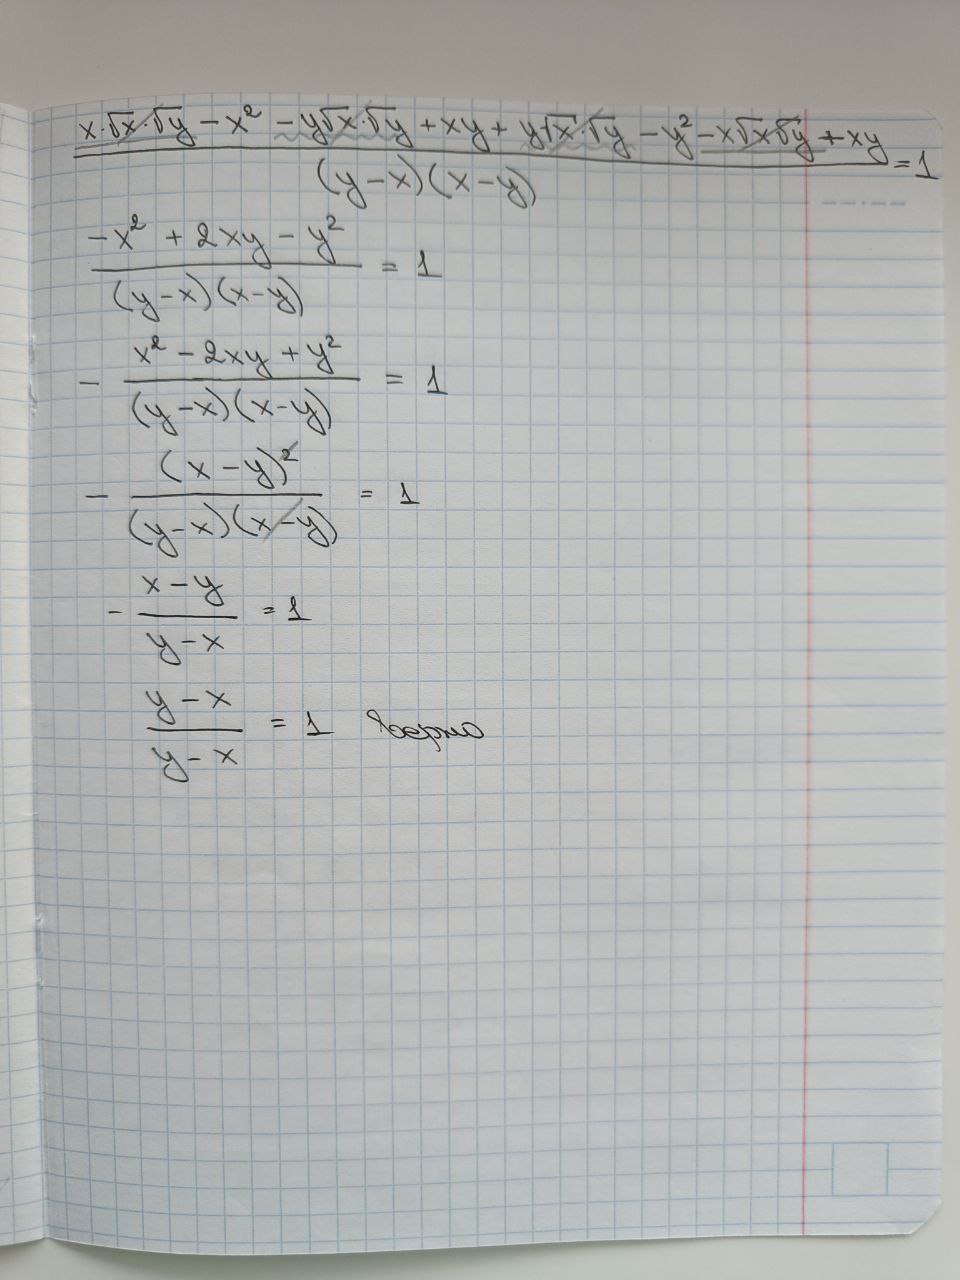 x·√x·√y - x² - y√x·√y + xy + y√x·√y - y² - x√x√y + xy
= 1
(y-x)(x-y)
-x² + 2xy - y²
= 1
(y-x)(x-y)
x² - 2xy + y²
- = 1
(y-x)(x-y)
(x-y)²
- = 1
(y-x)(x-y)
x-y
- = 1
y-x
y-x
= 1 верно
y-x